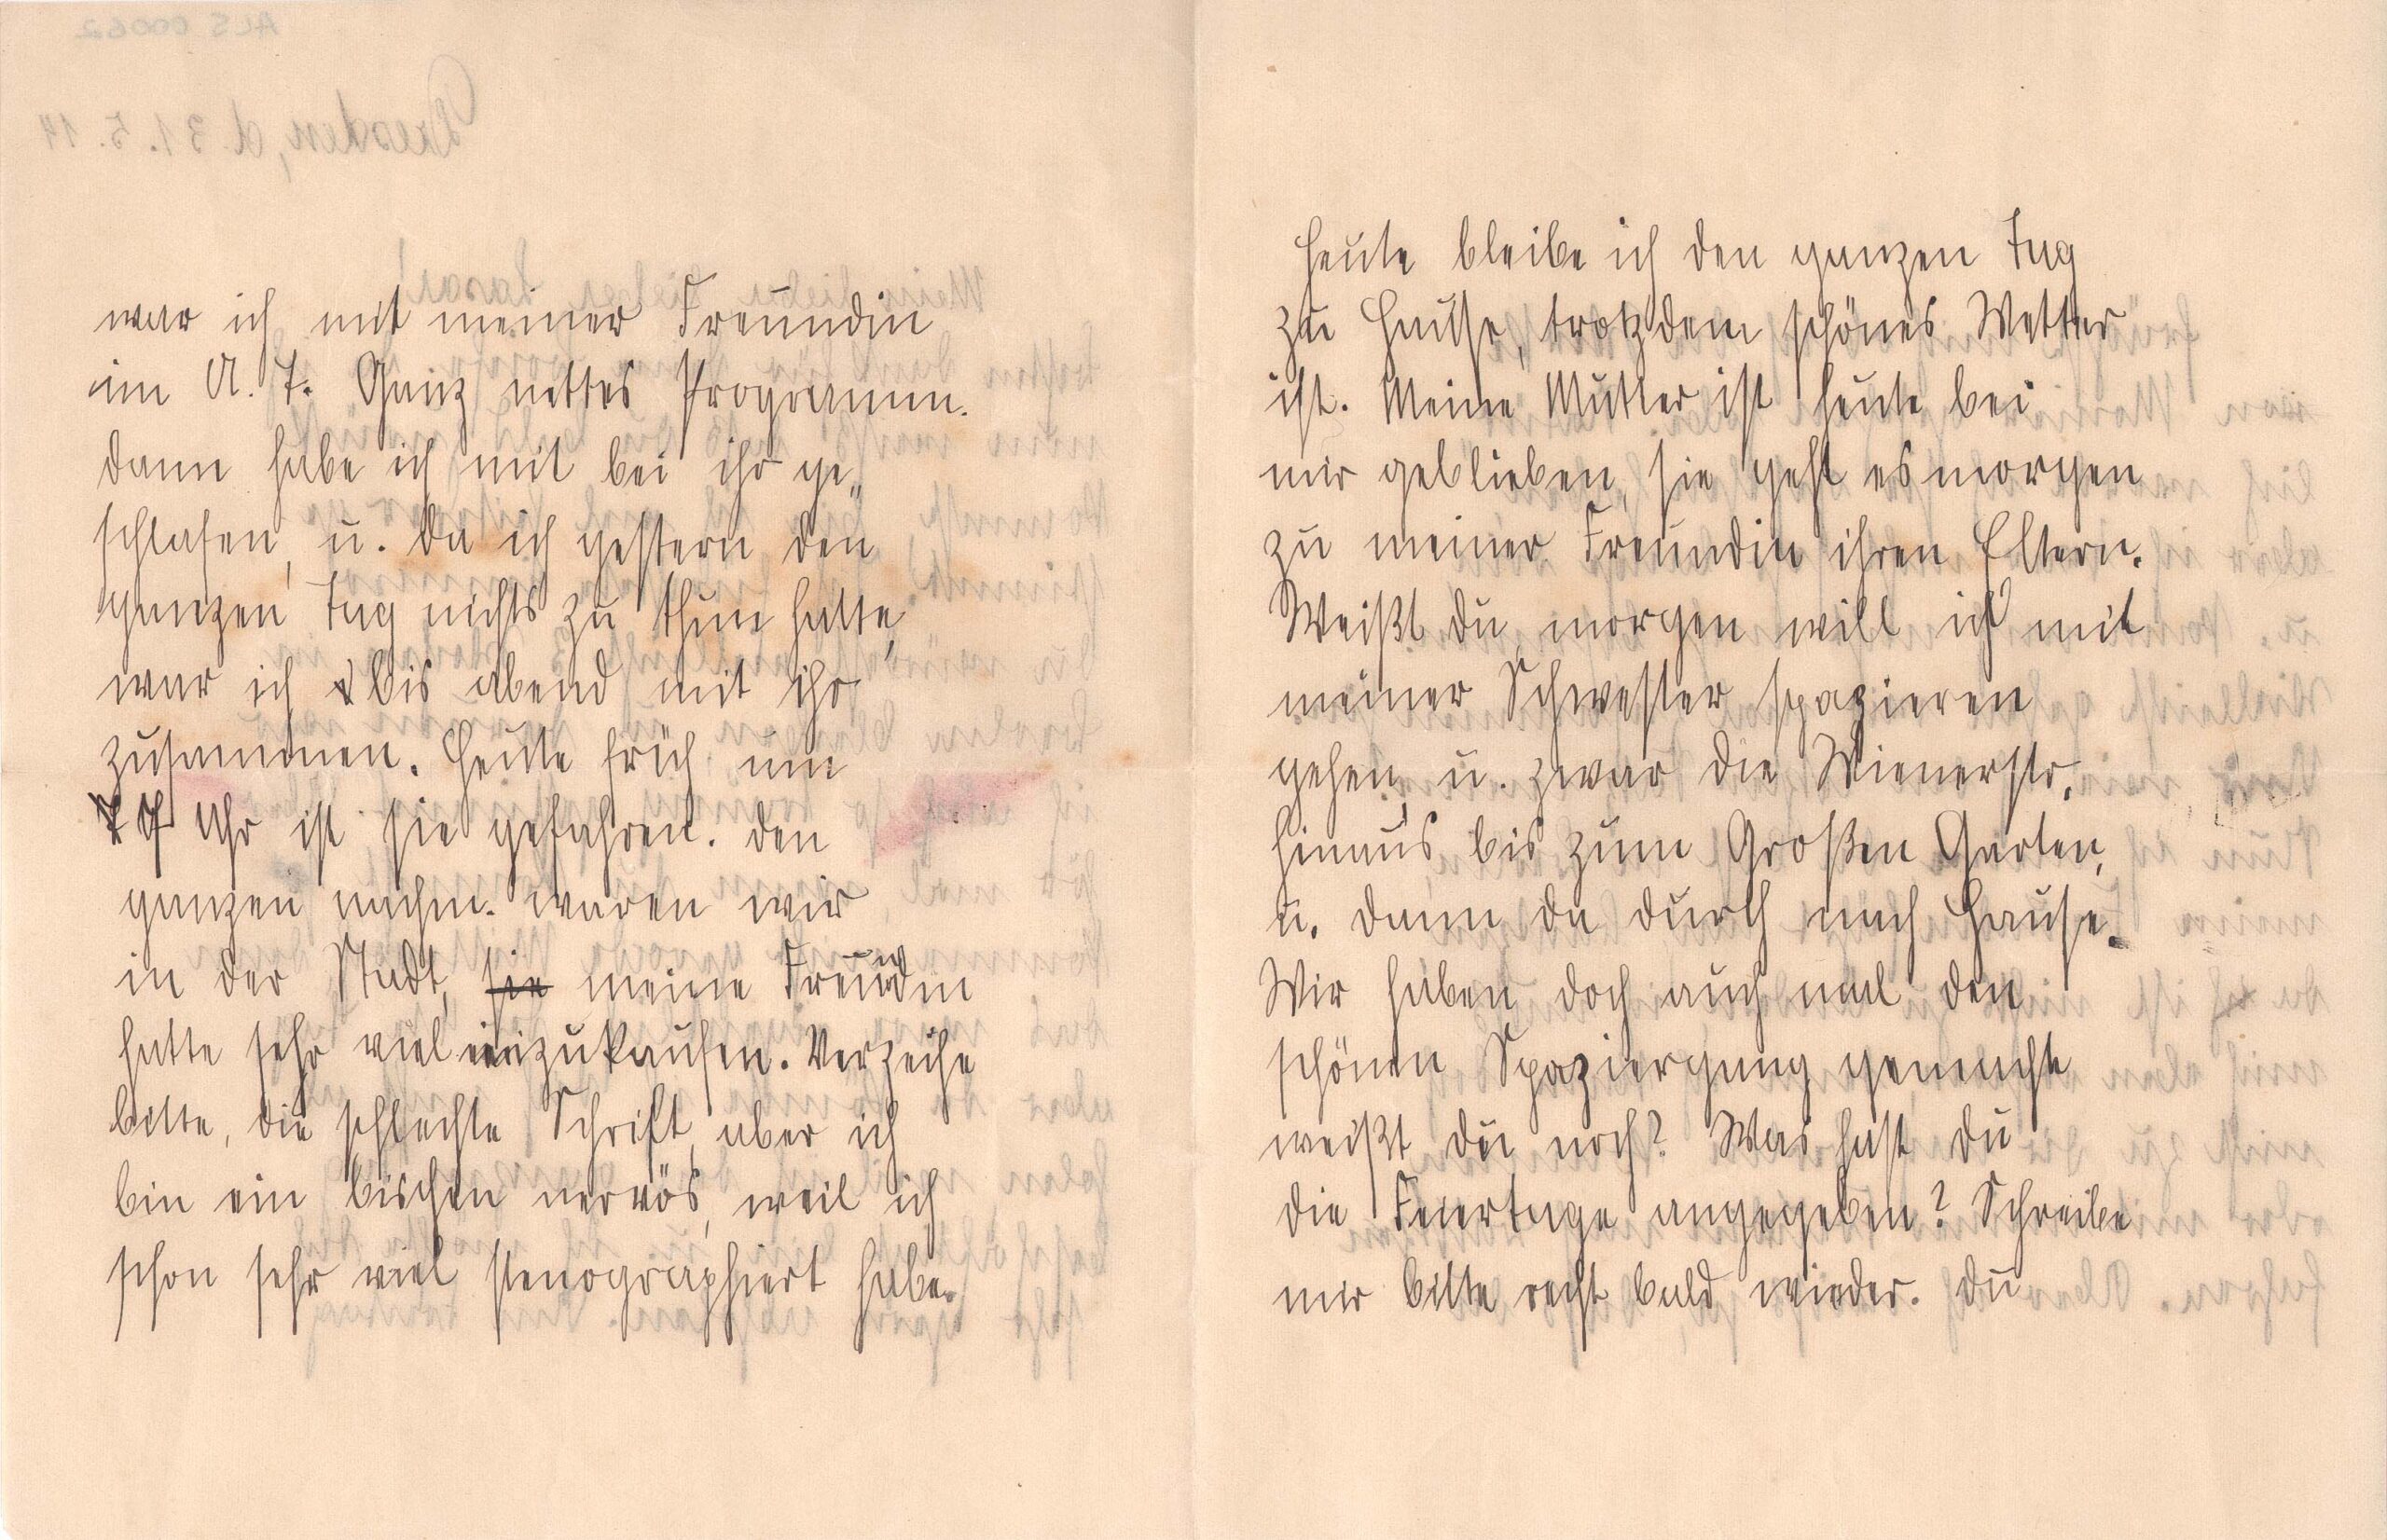 war ich mit meiner Freundin
im U. T. Ganz nettes Programm.
dann habe ich mit bei ihr ge„
schlafen, u. da ich gestern den
ganzen Tag nichts zu thun hatte,
war ich bis abend mit ihr
zusammen. Heute früh um
7 Uhr ist sie gefahren. den
ganzen nachm. waren wir
in der Stadt, sie meine Freundin
hatte sehr viel einzukaufen. Verzeihe
bitte, die schlechte Schrift, aber ich
bin ein bischen nervös, weil ich
schon sehr viel stenographiert habe.
Heute bleibe ich den ganzen Tag
zu Hause, trotzdem schönes Wetter
ist. Meine Mutter ist heute bei
mir geblieben, sie geht es morgen
zu meiner Freundin ihren Eltern.
Weißt du, morgen will ich mit
meiner Schwester spazieren
gehen, u. zwar die Wienerstr.
hinaus bis zum Großen Garten,
u. dann da durch nach Hause.
Wir haben doch auch mal den
schönen Spaziergang gemacht
weißt du noch? Was hast du
die Feiertage angegeben? Schreibe
mir bitte recht bald wieder. du